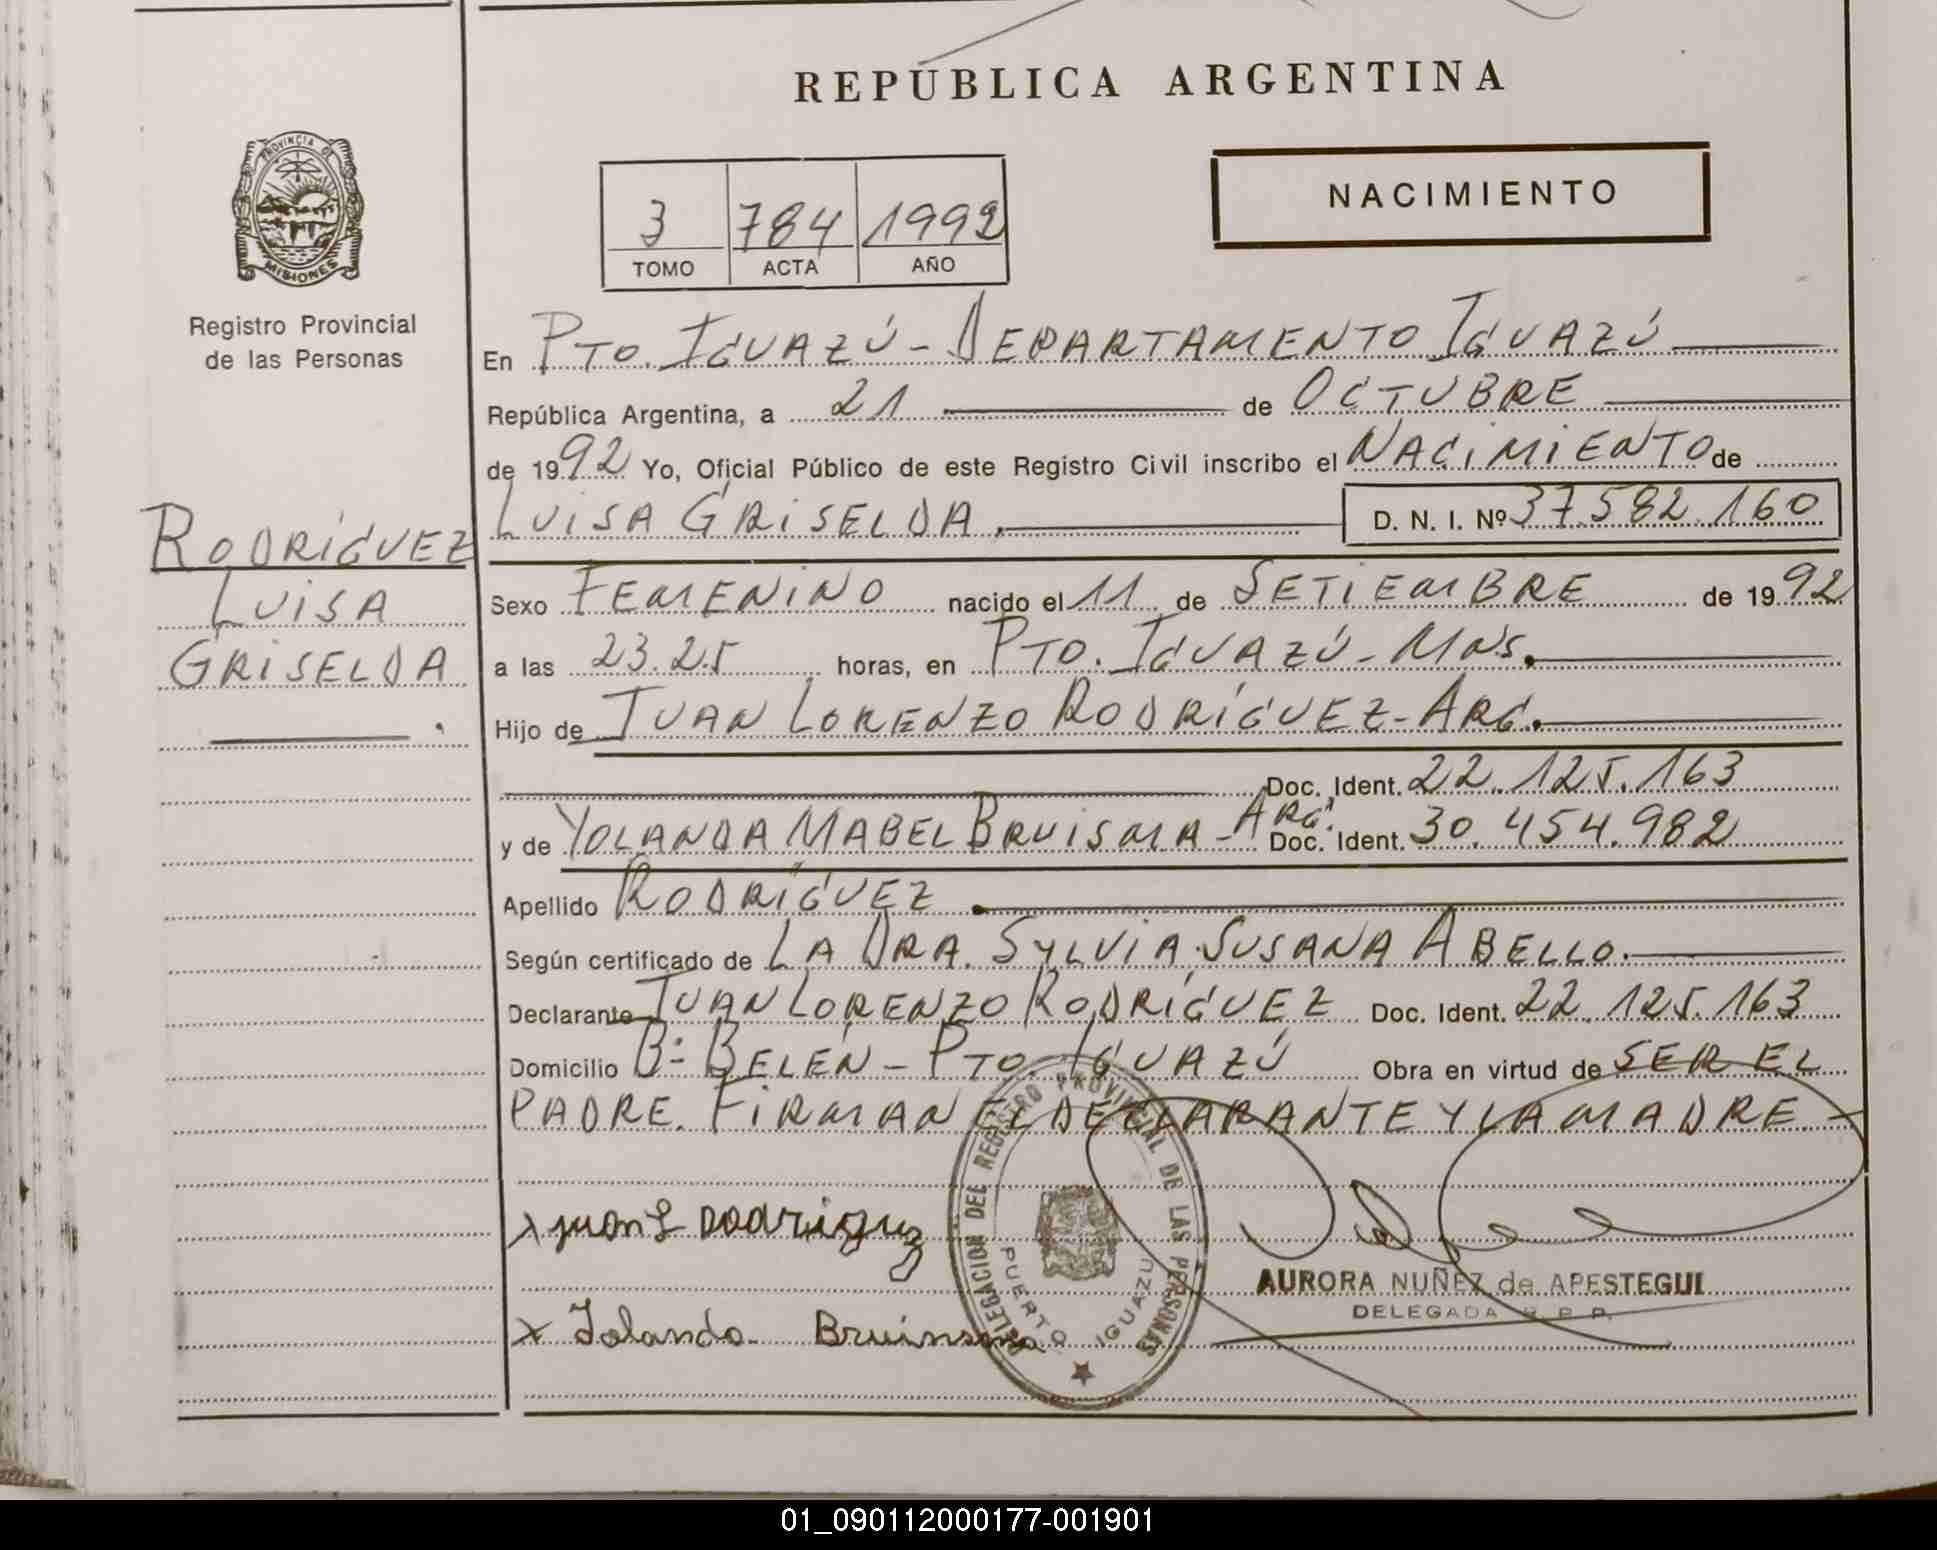 REPÚBLICA ARGENTINA
PROVINCIA DE
MISIONES
Registro Provincial
de las Personas
3 784 1992
TOMO ACTA AÑO
NACIMIENTO
En PTO. IGUAZÚ - DEPARTAMENTO IGUAZÚ
República Argentina, a 21 de OCTUBRE
de 1992 Yo, Oficial Público de este Registro Civil inscribo el NACIMIENTO de
LUISA GRISELDA. D. N. I. Nº 37.582.160
RODRÍGUEZ
LUISA
GRISELDA
Sexo FEMENINO nacido el 11 de SETIEMBRE de 1992
a las 23.25 horas, en PTO. IGUAZÚ - MNS.
Hijo de JUAN LORENZO RODRÍGUEZ - ARG.
Doc. Ident. 22.125.163
y de YOLANDA MABEL BRUISMA - ARG. Doc. Ident. 30.454.982
Apellido RODRÍGUEZ
Según certificado de LA DRA. SYLVIA SUSANA ABELLO.
Declarante JUAN LORENZO RODRÍGUEZ Doc. Ident. 22.125.163
Domicilio Bº BELÉN - PTO. IGUAZÚ Obra en virtud de SER EL
PADRE. FIRMAN EL DECLARANTE Y LA MADRE -
x juan L Rodriguez
DELEGACION DEL REGISTRO PROVINCIAL DE LAS PERSONAS
PUERTO IGUAZU
AURORA NUÑEZ de APESTEGUI
DELEGADA R. P. P.
x Yolanda Bruinsma
01_090112000177-001901